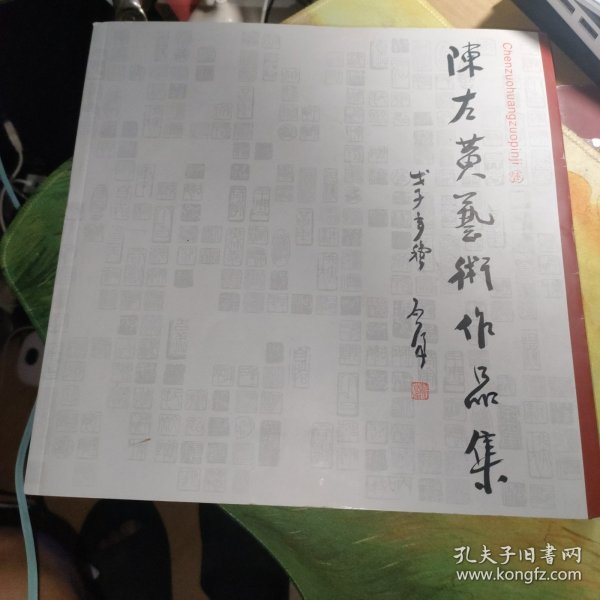 陳左黄藝術作品集
Chenzuohuangzuopinji
戊子
孔夫子旧书网
www.kongfz.com